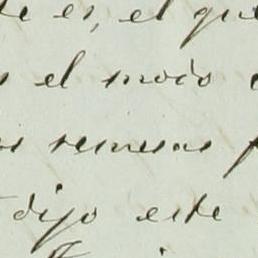 es, el que
el modo
remesas
dijo este